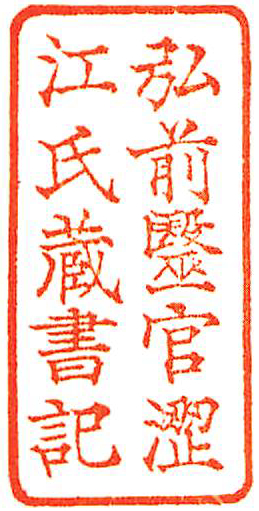 弘前毉官澀
江氏蔵書記